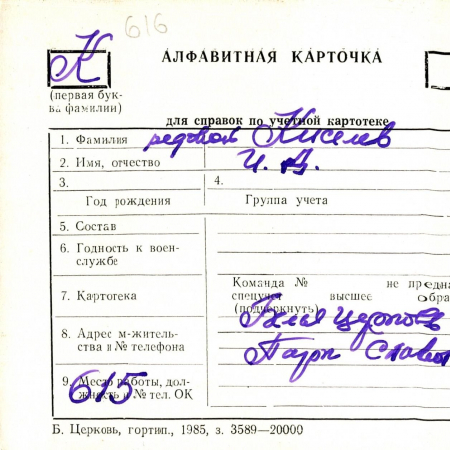 616
К АЛФАВИТНАЯ КАРТОЧКА
(первая бук-
ва фамилии)
для справок по учетной картотеке
1. Фамилия рядовой Киселев
2. Имя, отчество И. В.
3. 4.
Год рождения Группа учета
5. Состав
6. Годность к воен-
службе
7. Картотека
Команда № не предна
спецучет высшее обра
(подчеркнуть)
8. Адрес м-житель-
ства и № телефона
Белая Церковь
Парк Славы
9. Место работы, дол-
жность и № тел. ОК
615
Б. Церковь, гортип., 1985, з. 3589—20000